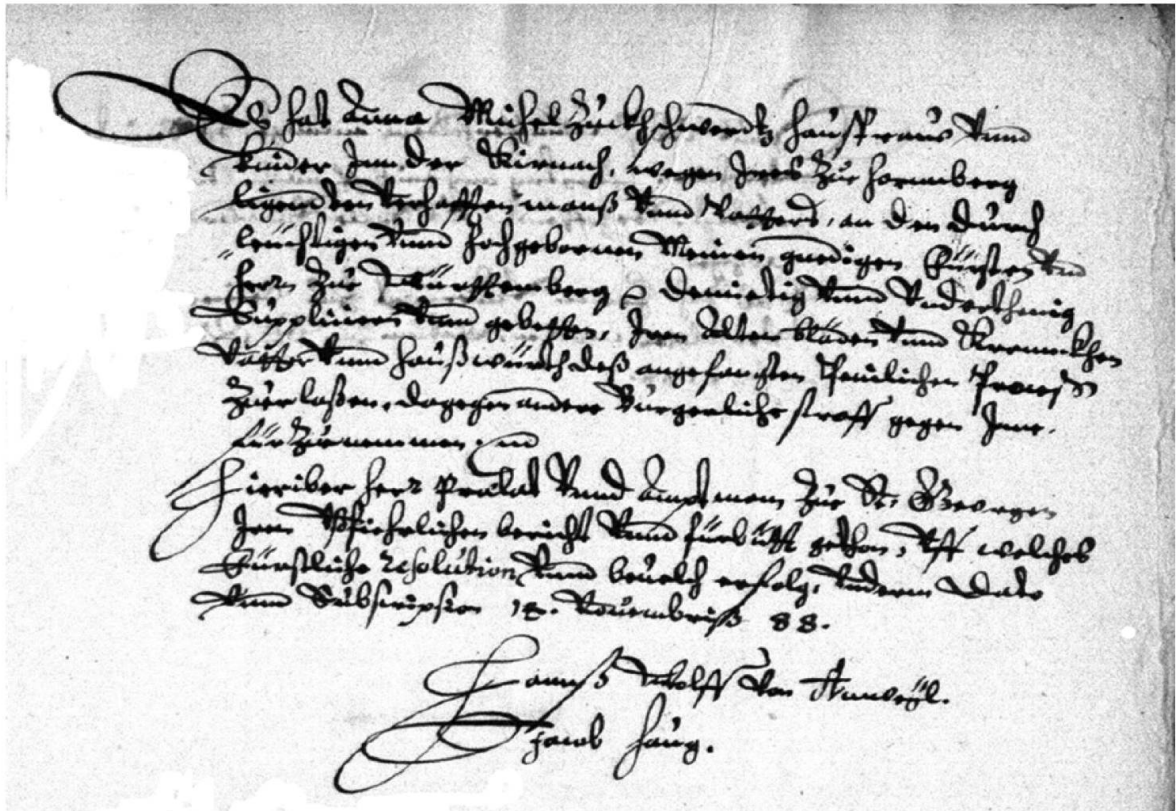 Es hat Anna Michel Zuckhschwerdtz haußfraw vnnd
kinder Inn der Kürnach, wegen Ires zue Hornnberg
ligenndten verhafften manß vnnd Vatters, an den durch
leüchtigen vnnd hochgebornen Meinen gnedigen Fürsten vnd
herrn zue Württemberg demüetig vnnd vnderthenig
Supplicirn vnnd gebetten, Iren Alten blöden vnnd Kranckhen
Vatter vnnd haußwürth deß angefangnen Peinlichen Proceß
zuerlaßen, dagegen andere Burgerliche straff gegen Ime
fürzunemmen
Hierüber herr Prälat vnnd Amptman zue St: Georgen
Iren vßfüehrlichen bericht vnnd fürbitt gethon, vff welches
Fürstliche resolution vnnd beuelch erfolgt, vnderm Dato
vnnd Subscription 18. Nouembriß 88.
Hannß Wolff von Anweyl.
Jacob Haug.